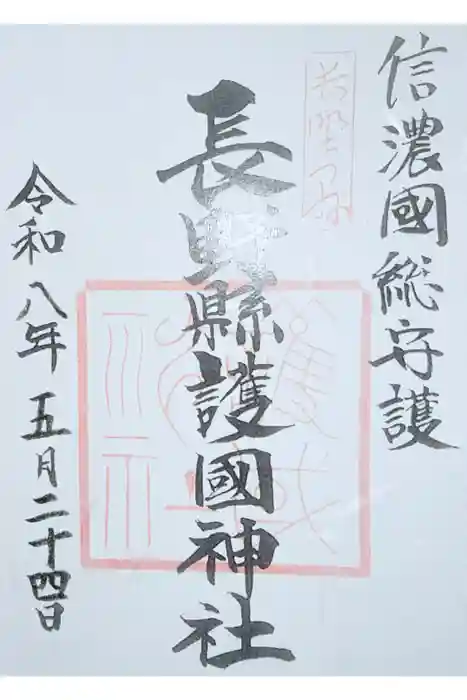 信濃國総守護
長野縣護國神社
令和八年五月二十四日